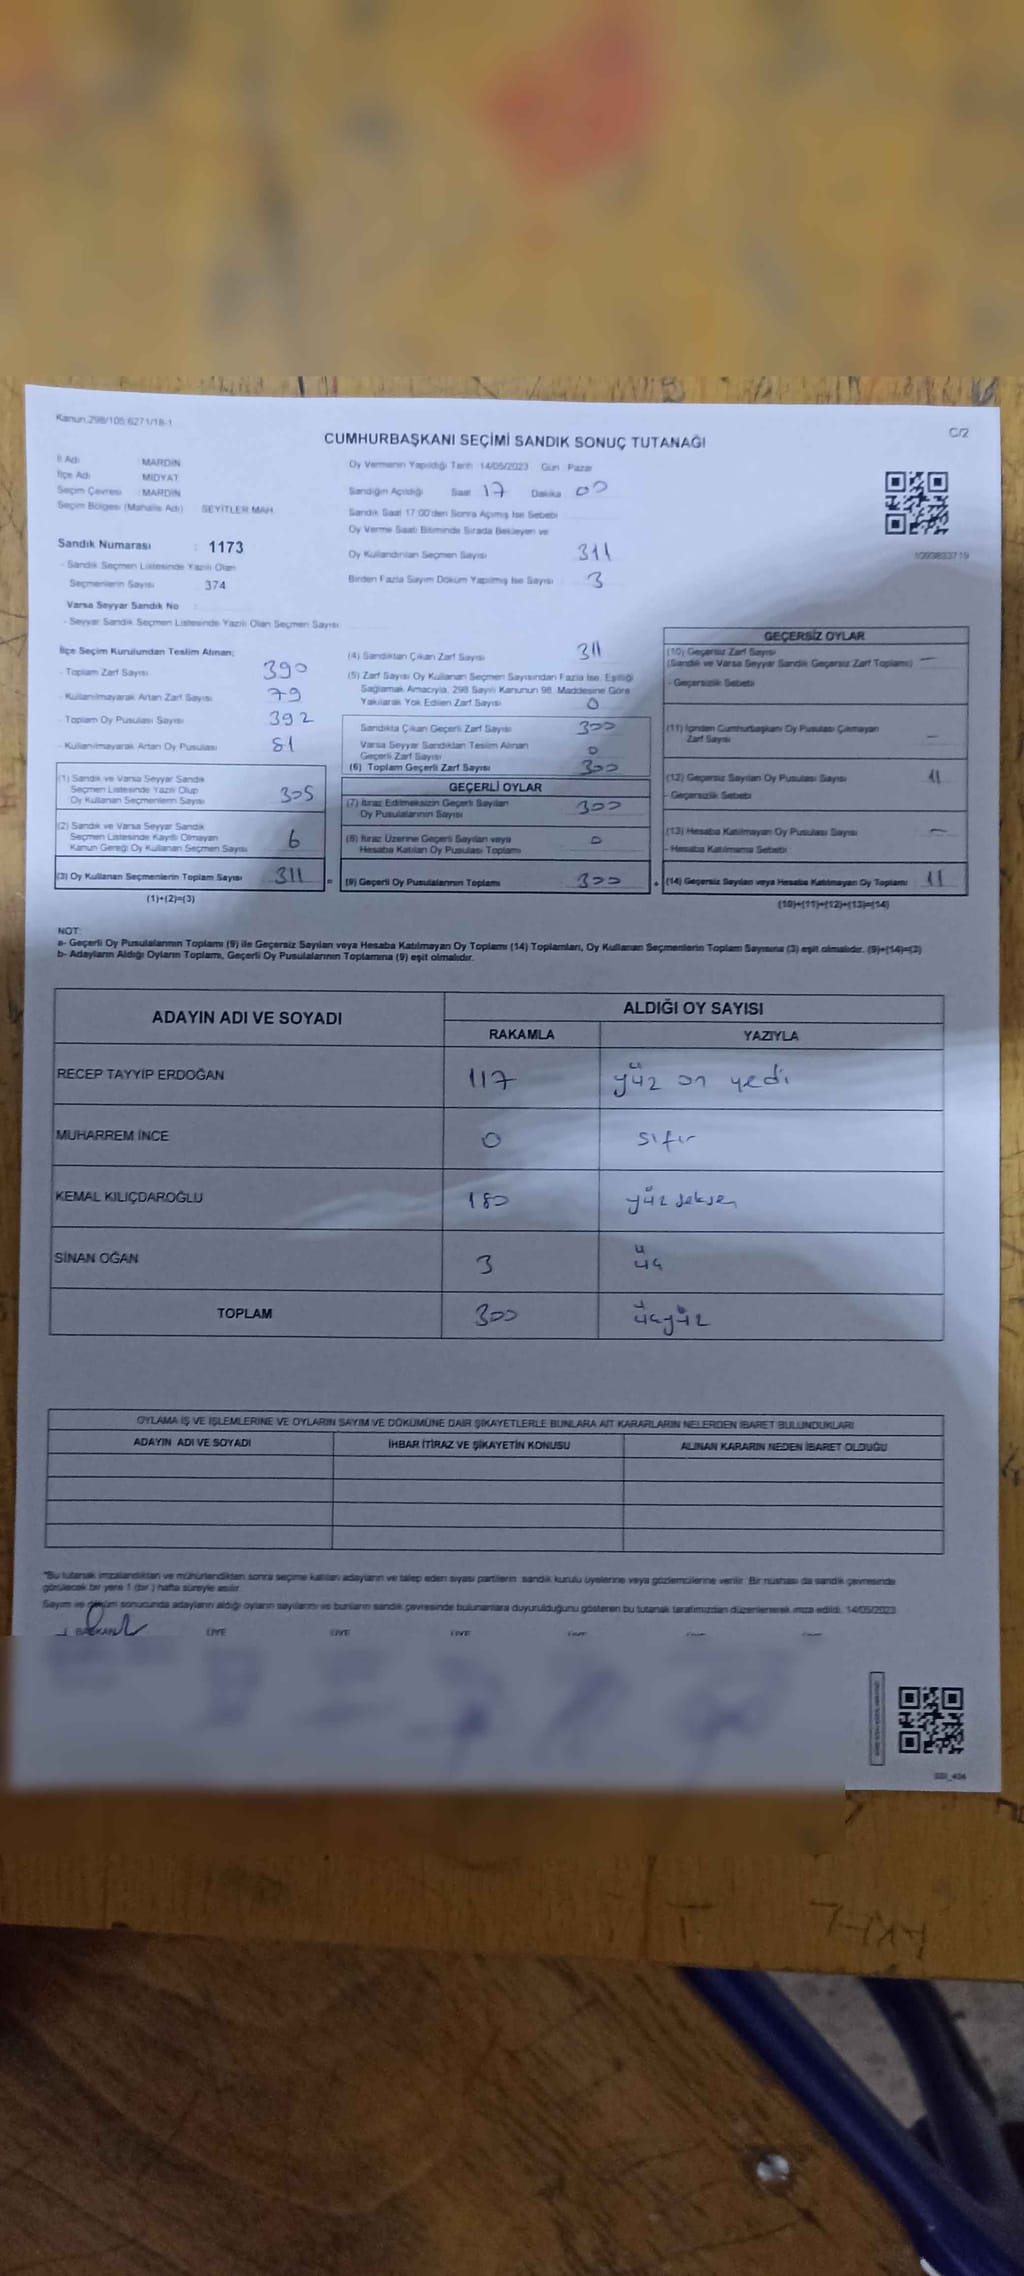 Kanun:298/105;6271/18-1
C/2
CUMHURBAŞKANI SEÇİMİ SANDIK SONUÇ TUTANAĞI
İl Adı : MARDİN
İlçe Adı : MİDYAT
Seçim Çevresi : MARDİN
Seçim Bölgesi (Mahalle Adı) SEYİTLER MAH.
Oy Vermenin Yapıldığı Tarih 14/05/2023 Gün Pazar
Sandığın Açıldığı Saat 17 Dakika 00
Sandık Saat 17:00'den Sonra Açımış İse Sebebi
Oy Verme Saati Bitiminde Sırada Bekleyen ve
Oy Kullandırılan Seçmen Sayısı 311
Birden Fazla Sayım Döküm Yapılmış İse Sayısı 3
Sandık Numarası : 1173
- Sandık Seçmen Listesinde Yazılı Olan
Seçmenlerin Sayısı 374
Varsa Seyyar Sandık No :
- Seyyar Sandık Seçmen Listesinde Yazılı Olan Seçmen Sayısı
İlçe Seçim Kurulundan Teslim Alınan;
- Toplam Zarf Sayısı 390
- Kullanılmayarak Artan Zarf Sayısı 79
- Toplam Oy Pusulası Sayısı 392
- Kullanılmayarak Artan Oy Pusulası 81
(1) Sandık ve Varsa Seyyar Sandık
Seçmen Listesinde Yazılı Olup
Oy Kullanan Seçmenlerin Sayısı 305
(2) Sandık ve Varsa Seyyar Sandık
Seçmen Listesinde Kayıtlı Olmayan
Kanun Gereği Oy Kullanan Seçmen Sayısı 6
(3) Oy Kullanan Seçmenlerin Toplam Sayısı 311 =
(1)+(2)=(3)
(4) Sandıktan Çıkan Zarf Sayısı 311
(5) Zarf Sayısı Oy Kullanan Seçmen Sayısından Fazla İse, Eşitliği
Sağlamak Amacıyla, 298 Sayılı Kanunun 98. Maddesine Göre
Yakılarak Yok Edilen Zarf Sayısı 0
Sandıkta Çıkan Geçerli Zarf Sayısı 300
Varsa Seyyar Sandıktan Teslim Alınan
Geçerli Zarf Sayısı 0
(6) Toplam Geçerli Zarf Sayısı 300
GEÇERLİ OYLAR
(7) İtiraz Edilmeksizin Geçerli Sayılan
Oy Pusulalarının Sayısı 300
(8) İtiraz Üzerine Geçerli Sayılan veya
Hesaba Katılan Oy Pusulası Toplamı 0
(9) Geçerli Oy Pusulalarının Toplamı 300 +
GEÇERSİZ OYLAR
(10) Geçersiz Zarf Sayısı
(Sandık ve Varsa Seyyar Sandık Geçersiz Zarf Toplamı) —
- Geçersizlik Sebebi
(11) İçinden Cumhurbaşkanı Oy Pusulası Çıkmayan
Zarf Sayısı —
(12) Geçersiz Sayılan Oy Pusulası Sayısı 11
- Geçersizlik Sebebi
(13) Hesaba Katılmayan Oy Pusulası Sayısı —
- Hesaba Katılmama Sebebi
(14) Geçersiz Sayılan veya Hesaba Katılmayan Oy Toplamı 11
(10)+(11)+(12)+(13)=(14)
NOT:
a- Geçerli Oy Pusulalarının Toplamı (9) ile Geçersiz Sayılan veya Hesaba Katılmayan Oy Toplamı (14) Toplamları, Oy Kullanan Seçmenlerin Toplam Sayısına (3) eşit olmalıdır. (9)+(14)=(3)
b- Adayların Aldığı Oyların Toplamı, Geçerli Oy Pusulalarının Toplamına (9) eşit olmalıdır.
ADAYIN ADI VE SOYADI
ALDIĞI OY SAYISI
RAKAMLA YAZIYLA
RECEP TAYYİP ERDOĞAN 117 yüz on yedi
MUHARREM İNCE 0 sıfır
KEMAL KILIÇDAROĞLU 180 yüz seksen
SİNAN OĞAN 3 üç
TOPLAM 300 üçyüz
OYLAMA İŞ VE İŞLEMLERİNE VE OYLARIN SAYIM VE DÖKÜMÜNE DAİR ŞİKAYETLERLE BUNLARA AİT KARARLARIN NELERDEN İBARET BULUNDUKLARI
ADAYIN ADI VE SOYADI İHBAR İTİRAZ VE ŞİKAYETİN KONUSU ALINAN KARARIN NEDEN İBARET OLDUĞU
*Bu tutanak imzalandıktan ve mühürlendikten sonra seçime katılan adayların ve talep eden siyasi partilerin sandık kurulu üyelerine veya gözlemcilerine verilir. Bir nüshası da sandık çevresinde
görülecek bir yere 1 (bir) hafta süreyle asılır.
Sayım ve döküm sonucunda adayların aldığı oyların sayılarını ve bunların sandık çevresinde bulunanlara duyurulduğunu gösteren bu tutanak tarafımızdan düzenlenerek imza edildi. 14/05/2023
BAŞKAN ÜYE ÜYE ÜYE